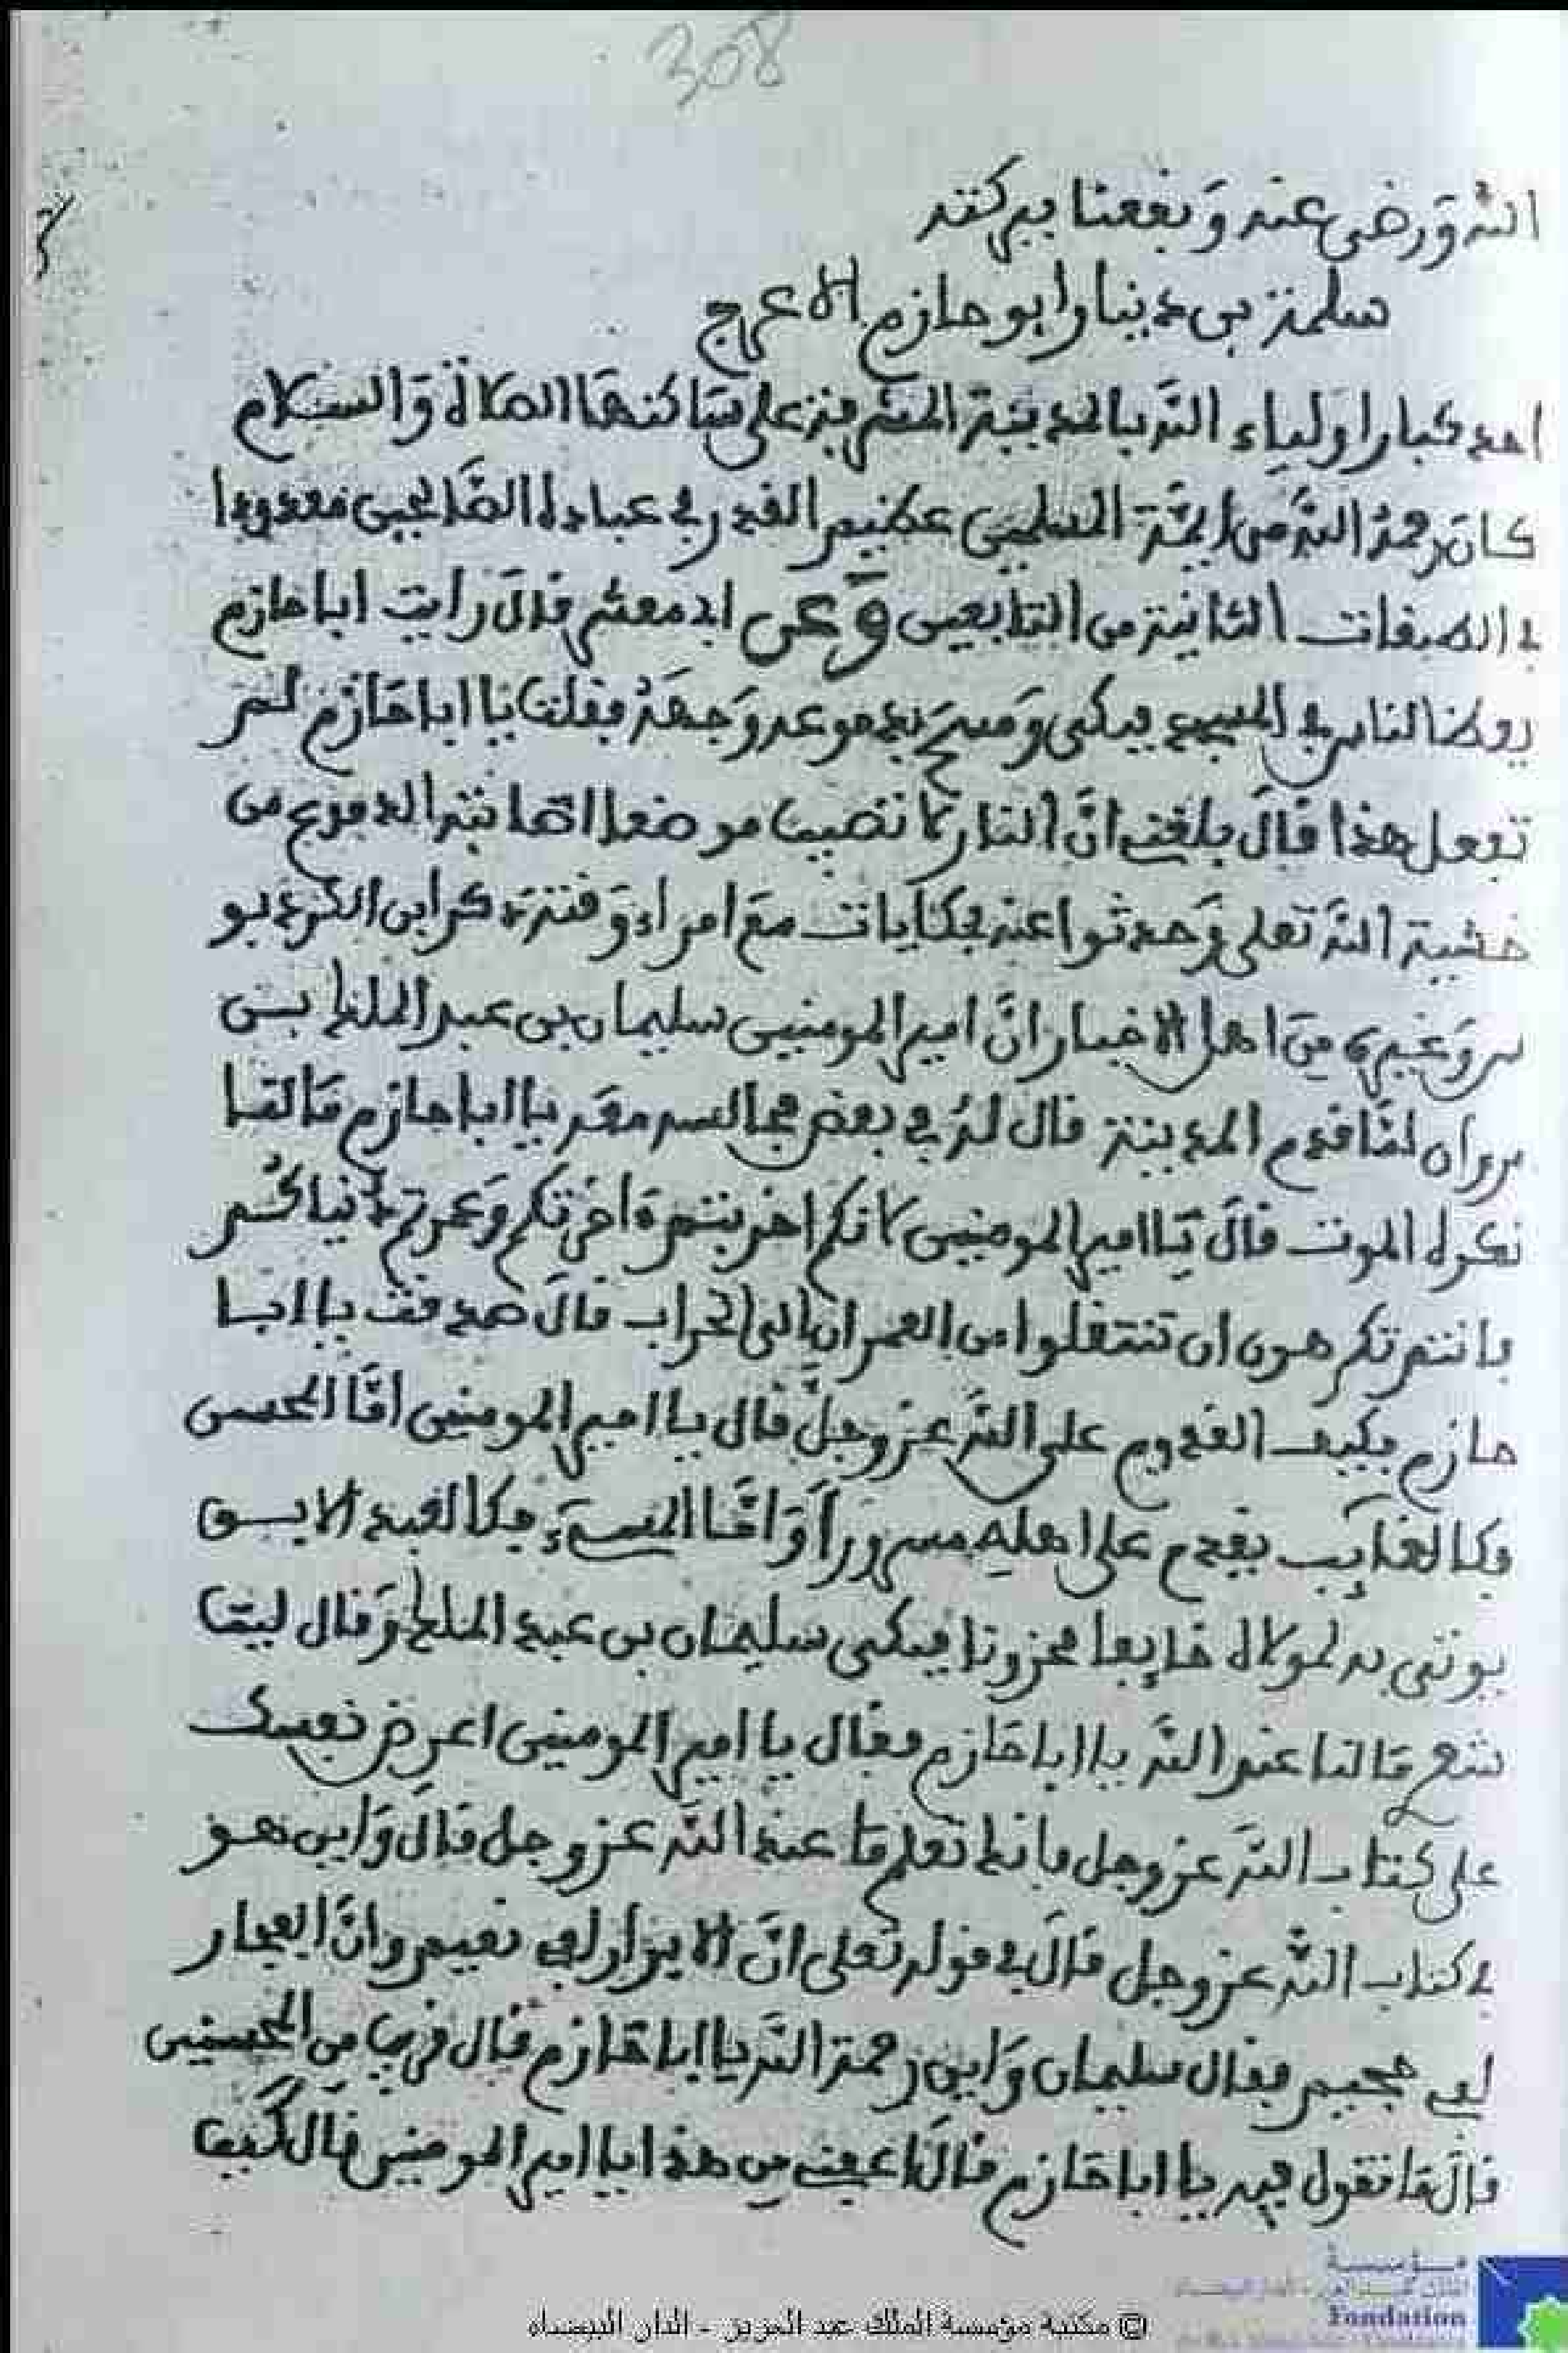 308
الله ورضى عنه ونفعنا ببركته
سلمة بن دينار ابو حازم الاعرج
احد كبار اولياء الله بالمدينة المشرفة على ساكنها الصلاة والسلام
كان رحمه الله من ايمة المسلمين عظيم القدر في عباده الصالحين معدودا
في الطبقات الثانية من التابعين وعن ابي معشر قال رايت ابا حازم
يوعظ الناس في المسجد يبكى ومسح بدموعه وجهه فقلت يا ابا حازم لم
تفعل هذا قال بلغني ان النار لا تصيب موضعا اصابته الدموع من
خشية الله تعلى وحدثوا عنه بحكايات مع امراء وقته ذكر ابن
وغيره من اهل الاخبار ان امير المومنين سليمان بن عبد الملك بن
مروان لما قدم المدينة قال له في بعض مجالسه معه يا ابا حازم ما لنا
نكره الموت قال يا امير المومنين لانكم اخربتم ءاخرتكم وعمرتم دنياكم
فانتم تكرهون ان تنتقلوا من العمران الى الخراب قال صدقت يا ابا
حازم فكيف القدوم على الله عز وجل قال يا امير المومنين اما المحسن
فكالغايب يقدم على اهله مسرورا واما المسيء فكالعبد الابق
يوتى به لمولاه خايفا محزونا فبكى سليمان بن عبد الملك وقال ليت
شعر ما لنا عند الله يا ابا حازم فقال يا امير المومنين اعرض نفسك
على كتاب الله عز وجل فانك تعلم ما عند الله عز وجل قال واين هو
في كتاب الله عز وجل قال في قوله تعلى ان الابرار لفي نعيم وان الفجار
لفي جحيم فقال سليمان واين رحمة الله يا ابا حازم قال قريب من المحسنين
قال ما تقول فيه يا ابا حازم قال اعفني من هذا يا امير المومنين قال كيف
© مكتبة مؤسسة الملك عبد العزيز - الدار البيضاء
مؤسسة
Fondation